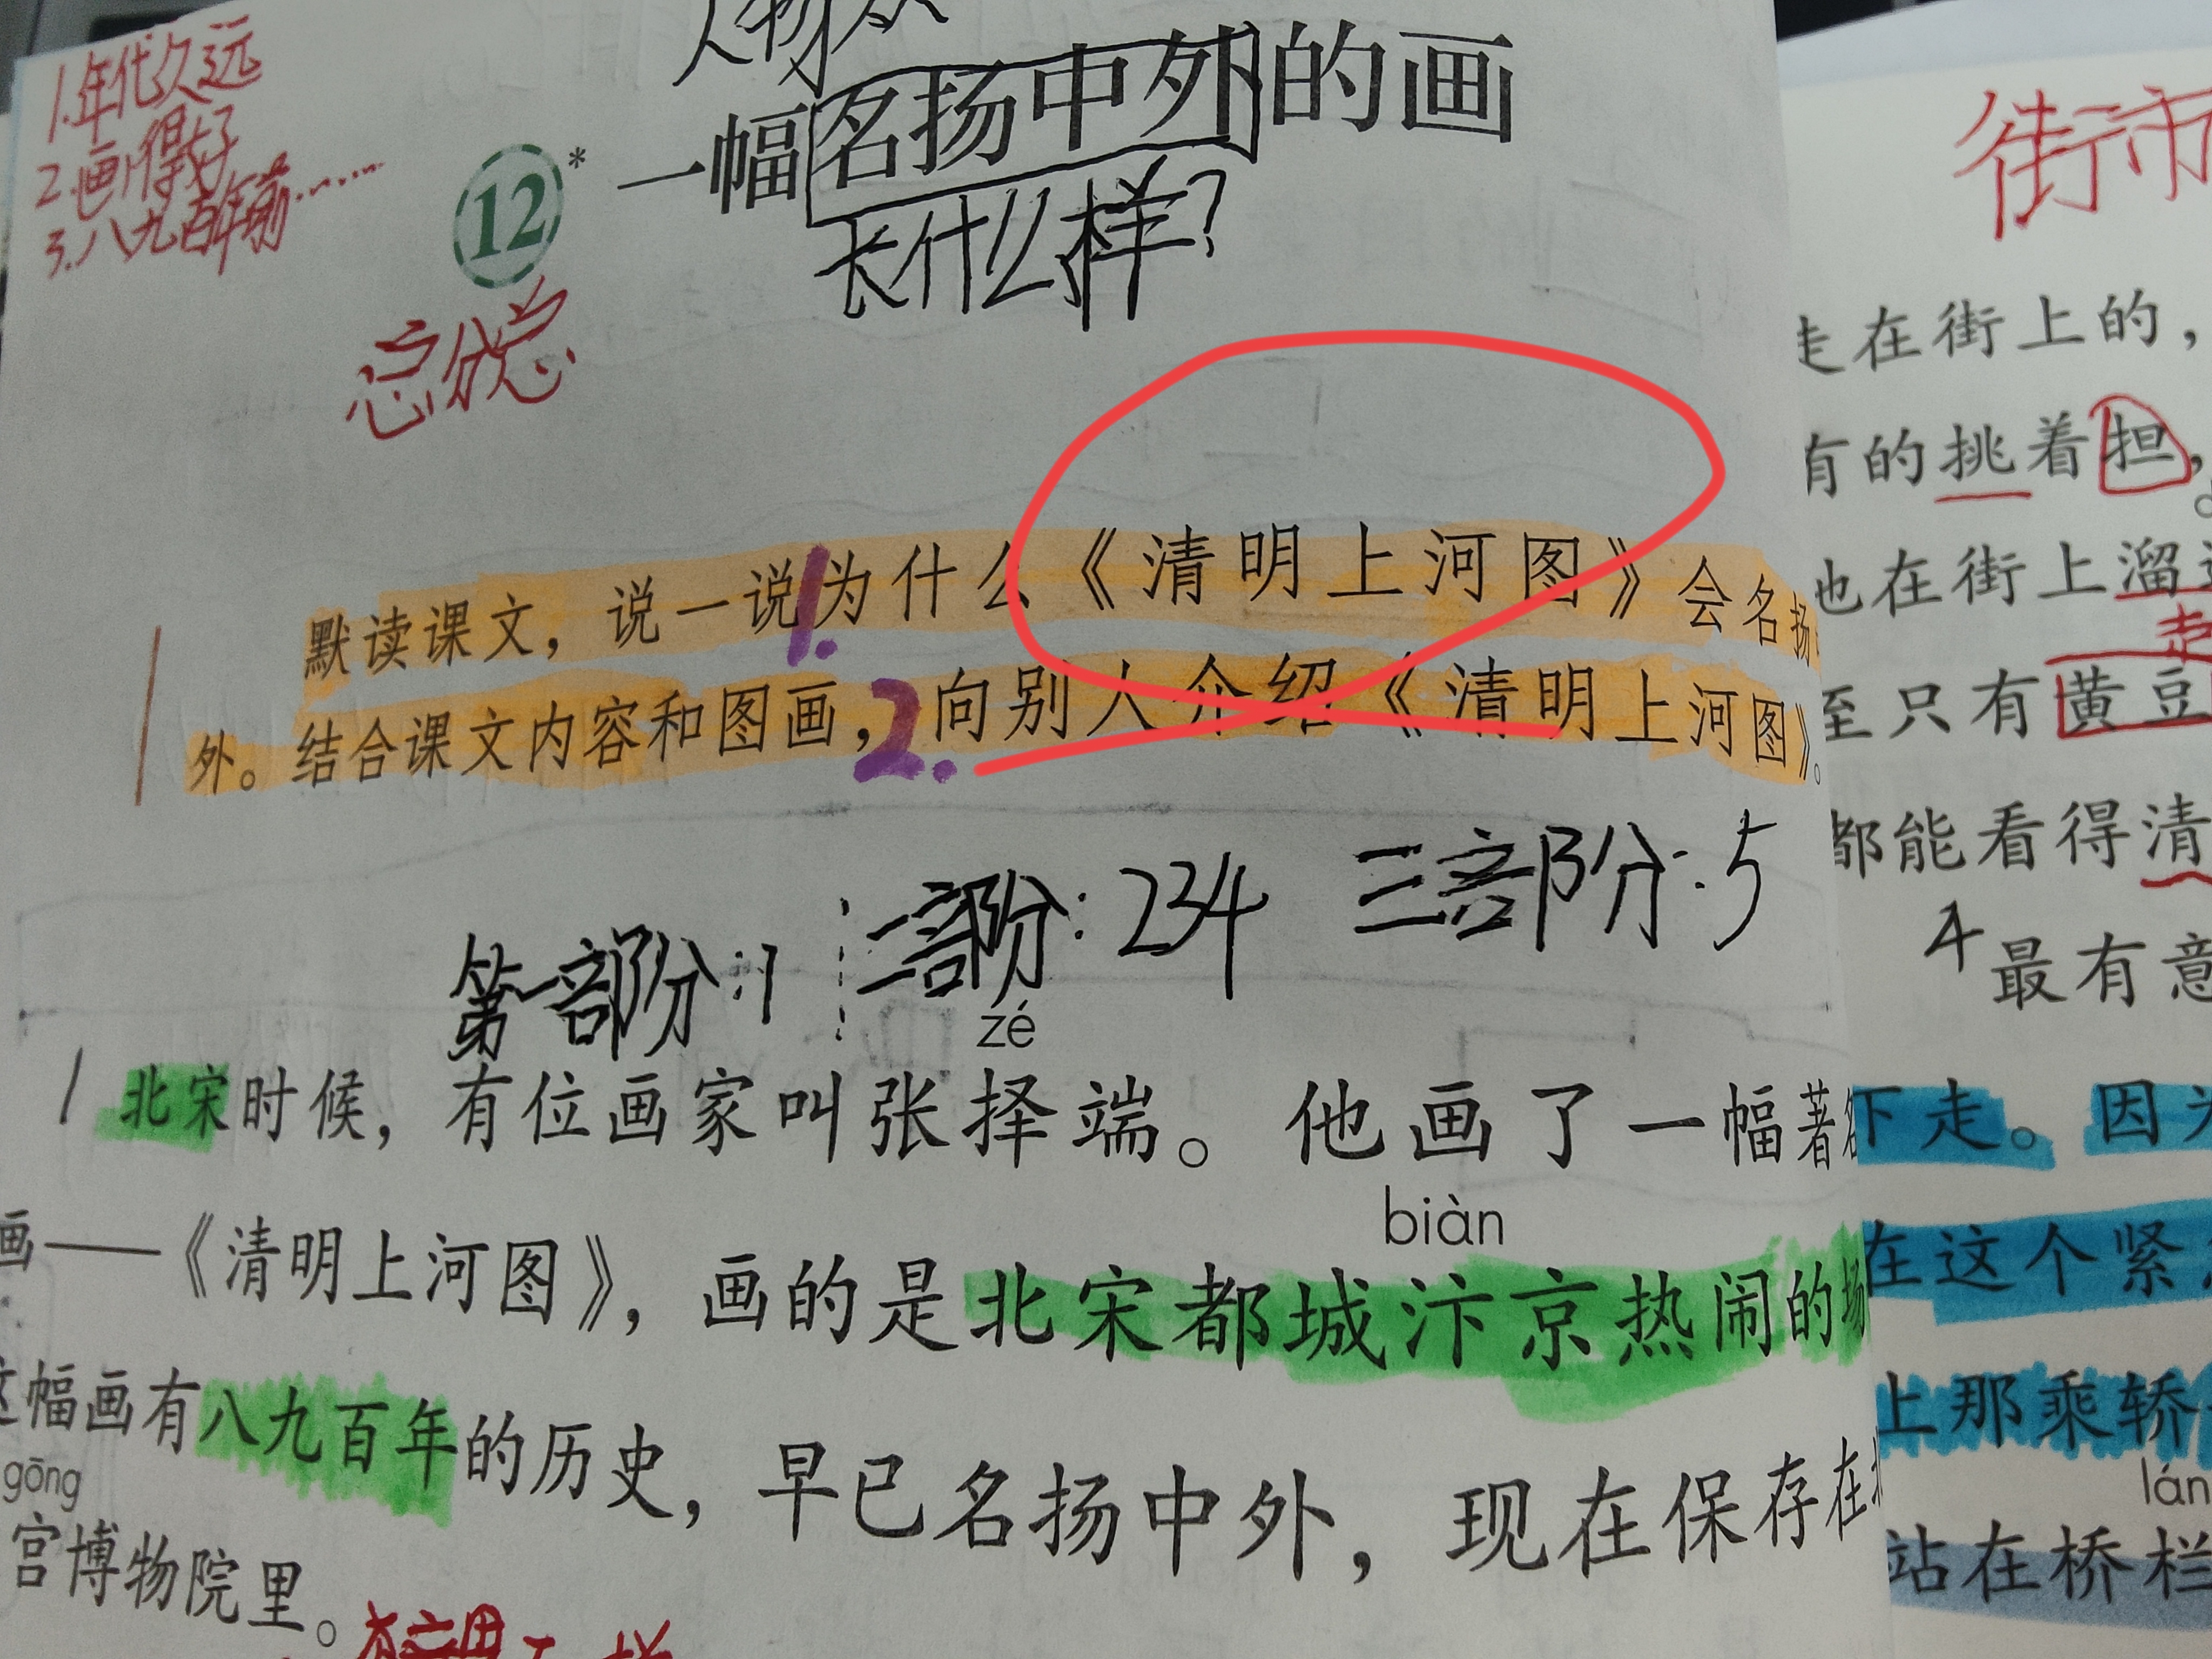 1.年代久远
2.画得好
3.八九百年前……
人物众
12* 一幅名扬中外的画
长什么样？
总分总
默读课文，说一说1.为什么《清明上河图》会名扬
外。结合课文内容和图画，2.向别人介绍《清明上河图》。
第一部分：1 二部分：234 三部分：5
zé
1 北宋时候，有位画家叫张择端。他画了一幅著名
biàn
画——《清明上河图》，画的是北宋都城汴京热闹的场
这幅画有八九百年的历史，早已名扬中外，现在保存在
gōng
宫博物院里。
街市
走在街上的，
有的挑着担，
也在街上溜
走
至只有黄豆
都能看得清
4 最有意
下走。因为
在这个紧
上那乘轿
lán
站在桥栏